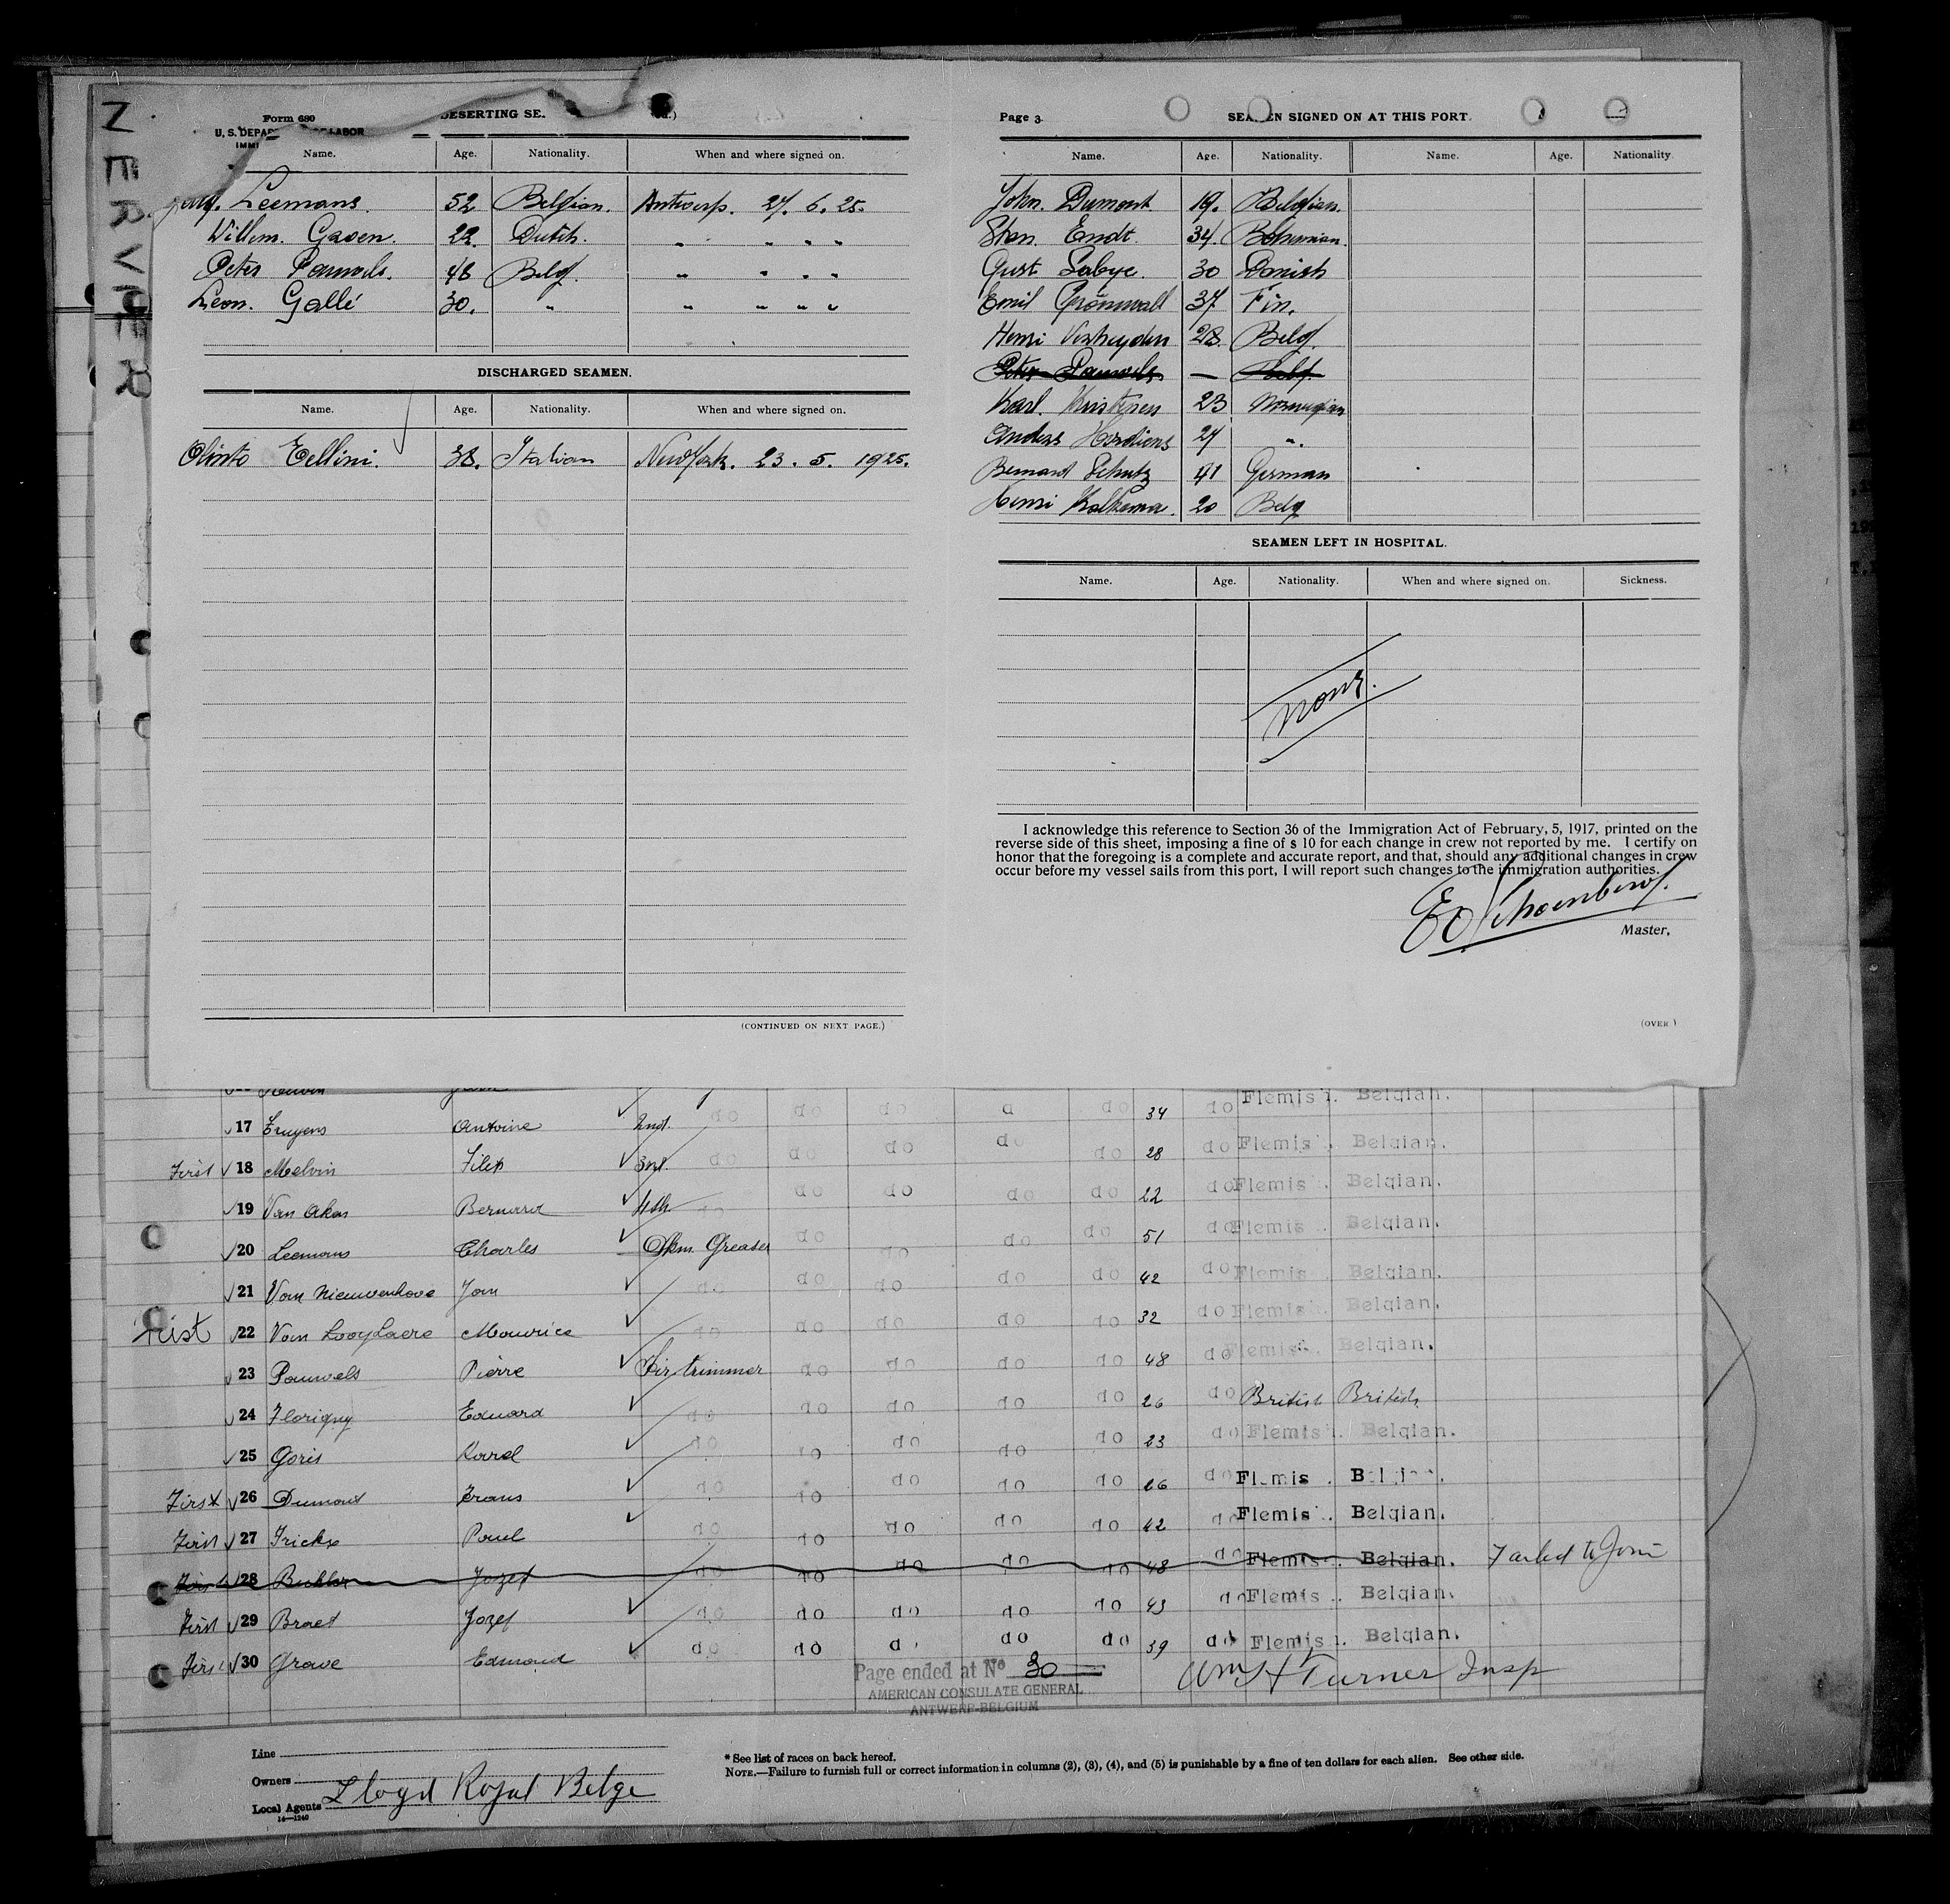 NERVIER
Form 680
U. S. DEPA LABOR
IMMI
DESERTING SE
Name. Age. Nationality. When and where signed on.
Leemans. 52 Belgian. Antwerp. 27. 6. 25.
Willem. Gasen. 22. Dutch. " " " "
Peter Pauwels. 48 Belg. " " " "
Leon. Gallé 30. " " " " "
DISCHARGED SEAMEN.
Name. Age. Nationality. When and where signed on.
Olinto Cellini. 38. Italian New York. 23. 5. 1925.
(CONTINUED ON NEXT PAGE.)
Page 3. SEAMEN SIGNED ON AT THIS PORT.
Name. Age. Nationality. Name. Age. Nationality
John. Dumont. 19. Belgian.
Endt. 34. Bohemian.
Gust Labye. 30 Danish
Emil Grönwall 37 Fin.
Henri Verheyden 28. Belg.
Peter Pauwels. — Belg.
Karl. Kristensen 23 Norwegian
Anders 27 ".
Bernard Schutz 41 German
Henri Kalkema. 20 Belg
SEAMEN LEFT IN HOSPITAL.
Name. Age. Nationality. When and where signed on. Sickness.
None.
I acknowledge this reference to Section 36 of the Immigration Act of February, 5, 1917, printed on the
reverse side of this sheet, imposing a fine of $ 10 for each change in crew not reported by me. I certify on
honor that the foregoing is a complete and accurate report, and that, should any additional changes in crew
occur before my vessel sails from this port, I will report such changes to the immigration authorities.
Master,
(OVER)
Flemish. Belgian.
17 Antoine 2nd. do do do do do 34 do Flemish. Belgian.
First 18 Melvin Filip 3rd. do do do do do 28 do Flemish. Belgian.
19 Van Aken Bernard 4th do do do do do 22 do Flemish. Belgian.
20 Leemans Charles Dkm. Greaser do do do do 51 do Flemish. Belgian.
21 Van Nieuwenhove Jan do do do do do 42 do Flemish. Belgian.
First 22 Van Looylaere Maurice do do do do do 32 do Flemish. Belgian.
23 Pauwels Pierre Fir. trimmer do do do do 48 do Flemish. Belgian.
24 Florigny Eduard do do do do do 26 do British British
25 Goris Karel do do do do do 23 do Flemish. Belgian.
First 26 Dumont Frans do do do do do 26 do Flemish. Belgian.
First 27 Frickx Paul do do do do do 42 do Flemish. Belgian.
First 28 Jozef do do do do do 48 do Flemish. Belgian. Failed to Join
First 29 Braet Jozef do do do do do 43 do Flemish. Belgian.
First 30 Grave Edmond do do do do do 39 do Flemish. Belgian.
Page ended at No 30
AMERICAN CONSULATE GENERAL
ANTWERP-BELGIUM
Wm H Turner Insp
Line
Owners
Local Agents Lloyd Royal Belge
14—1240
* See list of races on back hereof.
NOTE.—Failure to furnish full or correct information in columns (2), (3), (4), and (5) is punishable by a fine of ten dollars for each alien. See other side.